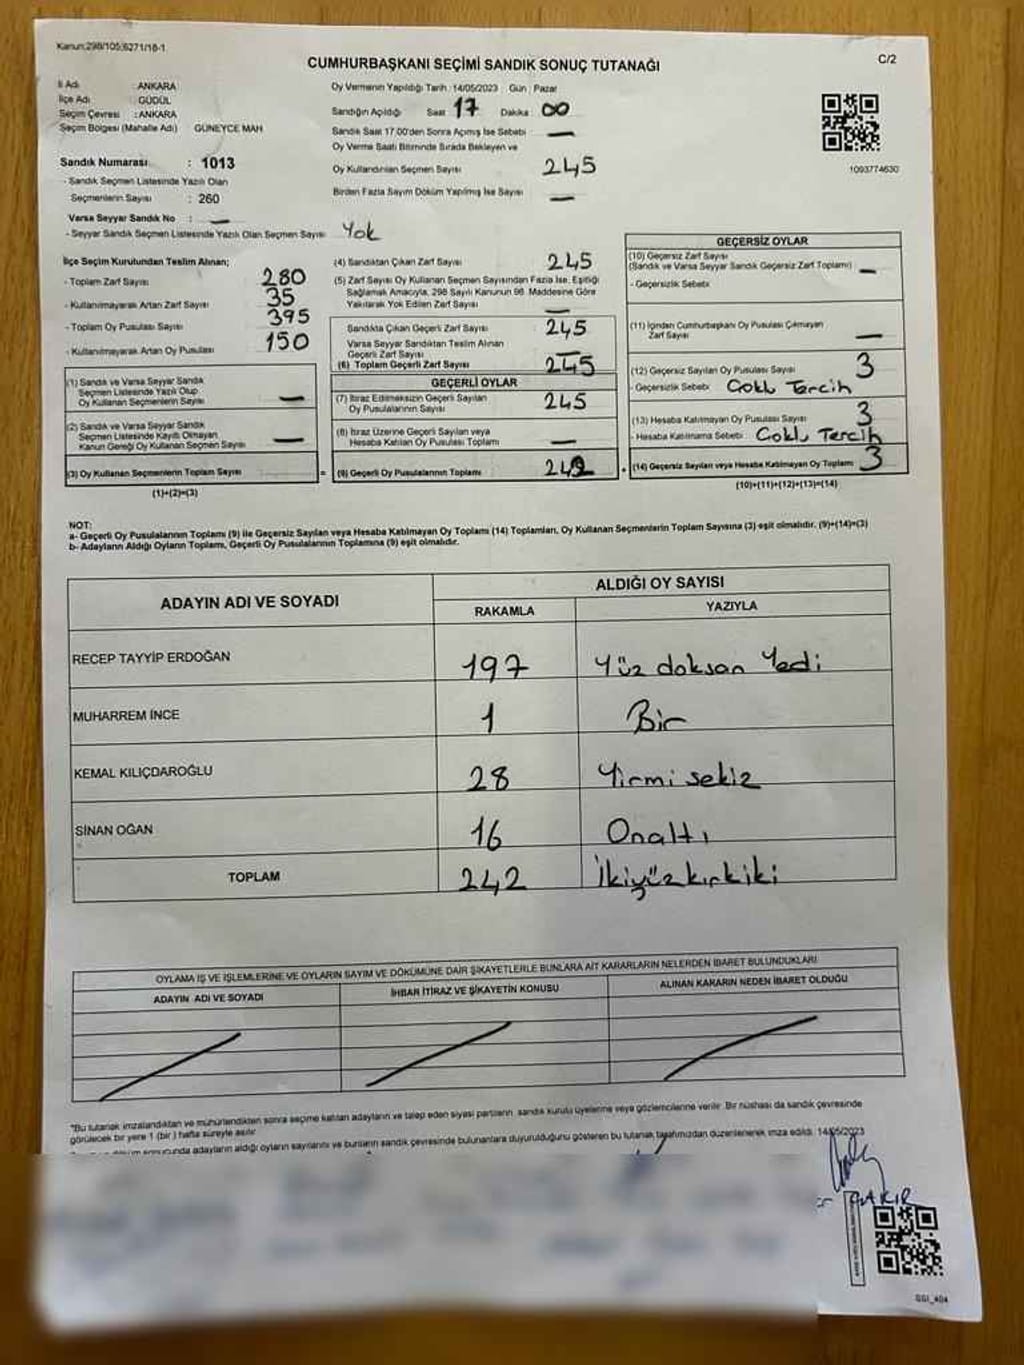 Kanun:298/105;6271/18-1
CUMHURBAŞKANI SEÇİMİ SANDIK SONUÇ TUTANAĞI
C/2
İl Adı : ANKARA
İlçe Adı : GÜDÜL
Seçim Çevresi : ANKARA
Seçim Bölgesi (Mahalle Adı) GÜNEYCE MAH
Sandık Numarası : 1013
- Sandık Seçmen Listesinde Yazılı Olan
Seçmenlerin Sayısı : 260
Varsa Seyyar Sandık No : —
- Seyyar Sandık Seçmen Listesinde Yazılı Olan Seçmen Sayısı Yok
Oy Vermenin Yapıldığı Tarih : 14/05/2023 Gün : Pazar
Sandığın Açıldığı Saat 17 Dakika : 00
Sandık Saat 17.00'den Sonra Açımış İse Sebebi —
Oy Verme Saati Bitiminde Sırada Bekleyen ve
Oy Kullandırılan Seçmen Sayısı 245
Birden Fazla Sayım Döküm Yapılmış İse Sayısı —
1093774630
İlçe Seçim Kurulundan Teslim Alınan;
- Toplam Zarf Sayısı 280
- Kullanılmayarak Artan Zarf Sayısı 35
- Toplam Oy Pusulası Sayısı 395
- Kullanılmayarak Artan Oy Pusulası 150
(1) Sandık ve Varsa Seyyar Sandık
Seçmen Listesinde Yazılı Olup
Oy Kullanan Seçmenlerin Sayısı —
(2) Sandık ve Varsa Seyyar Sandık
Seçmen Listesinde Kayıtlı Olmayan
Kanun Gereği Oy Kullanan Seçmen Sayısı —
(3) Oy Kullanan Seçmenlerin Toplam Sayısı
=
(1)+(2)=(3)
(4) Sandıktan Çıkan Zarf Sayısı 245
(5) Zarf Sayısı Oy Kullanan Seçmen Sayısından Fazla İse, Eşitliği
Sağlamak Amacıyla, 298 Sayılı Kanunun 98. Maddesine Göre
Yakılarak Yok Edilen Zarf Sayısı —
Sandıkta Çıkan Geçerli Zarf Sayısı 245
Varsa Seyyar Sandıktan Teslim Alınan
Geçerli Zarf Sayısı —
(6) Toplam Geçerli Zarf Sayısı 245
GEÇERLİ OYLAR
(7) İtiraz Edilmeksizin Geçerli Sayılan
Oy Pusulalarının Sayısı 245
(8) İtiraz Üzerine Geçerli Sayılan veya
Hesaba Katılan Oy Pusulası Toplamı —
(9) Geçerli Oy Pusulalarının Toplamı 242
+
GEÇERSİZ OYLAR
(10) Geçersiz Zarf Sayısı
(Sandık ve Varsa Seyyar Sandık Geçersiz Zarf Toplamı) —
- Geçersizlik Sebebi:
(11) İçinden Cumhurbaşkanı Oy Pusulası Çıkmayan
Zarf Sayısı —
(12) Geçersiz Sayılan Oy Pusulası Sayısı 3
- Geçersizlik Sebebi: Çoklu Tercih
(13) Hesaba Katılmayan Oy Pusulası Sayısı 3
- Hesaba Katılmama Sebebi: Çoklu Tercih
(14) Geçersiz Sayılan veya Hesaba Katılmayan Oy Toplamı 3
(10)+(11)+(12)+(13)=(14)
NOT:
a- Geçerli Oy Pusulalarının Toplamı (9) ile Geçersiz Sayılan veya Hesaba Katılmayan Oy Toplamı (14) Toplamları, Oy Kullanan Seçmenlerin Toplam Sayısına (3) eşit olmalıdır. (9)+(14)=(3)
b- Adayların Aldığı Oyların Toplamı, Geçerli Oy Pusulalarının Toplamına (9) eşit olmalıdır.
ADAYIN ADI VE SOYADI
ALDIĞI OY SAYISI
RAKAMLA YAZIYLA
RECEP TAYYİP ERDOĞAN 197 Yüz doksan Yedi
MUHARREM İNCE 1 Bir
KEMAL KILIÇDAROĞLU 28 Yirmi sekiz
SİNAN OĞAN 16 Onaltı
TOPLAM 242 İkiyüzkırkiki
OYLAMA İŞ VE İŞLEMLERİNE VE OYLARIN SAYIM VE DÖKÜMÜNE DAİR ŞİKAYETLERLE BUNLARA AİT KARARLARIN NELERDEN İBARET BULUNDUKLARI
ADAYIN ADI VE SOYADI İHBAR İTİRAZ VE ŞİKAYETİN KONUSU ALINAN KARARIN NEDEN İBARET OLDUĞU
"Bu tutanak imzalandıktan ve mühürlendikten sonra seçime katılan adayların ve talep eden siyasi partilerin sandık kurulu üyelerine veya gözlemcilerine verilir. Bir nüshası da sandık çevresinde
görülecek bir yere 1 (bir) hafta süreyle asılır.
sonucunda adayların aldığı oyların sayılarını ve bunların sandık çevresinde bulunanlara duyurulduğunu gösteren bu tutanak tarafımızdan düzenlenerek imza edildi. 14/05/2023